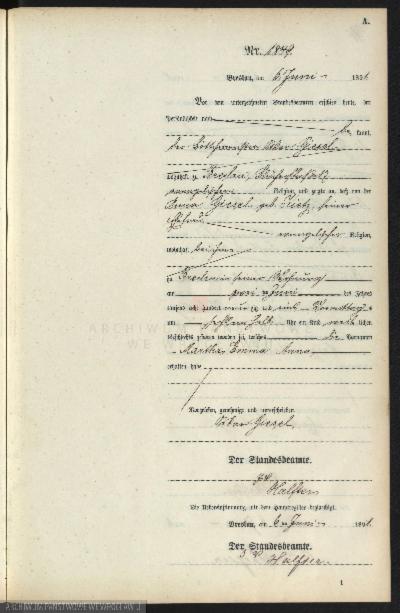 A.
Nr. 1849.
Breslau, am 6. Juni 1891.
Vor dem unterzeichneten Standesbeamten erschien heute, der
Persönlichkeit nach
kannt,
der Böttchermeister Oskar Giesel
wohnhaft zu Breslau,
evangelischer Religion, und zeigte an, daß von der
Giesel geb. Tietz, seiner
Ehefrau
evangelischer Religion,
wohnhaft bei ihm
zu Breslau in seiner Wohnung
am Juni des Jahres
tausend acht hundert neunzig und eins Vormittags
um halb Uhr ein Kind weib lichen
Geschlechts geboren worden sei, welches die Vornamen
Martha Emma Anna
erhalten habe
Vorgelesen, genehmigt und unterschrieben
Oskar Giesel
Der Standesbeamte.
Die Uebereinstimmung mit dem Hauptregister beglaubigt.
Breslau, am 6. Juni 1891.
Der Standesbeamte.
1
ARCHIWUM PAŃSTWOWE WE WROCŁAWIU